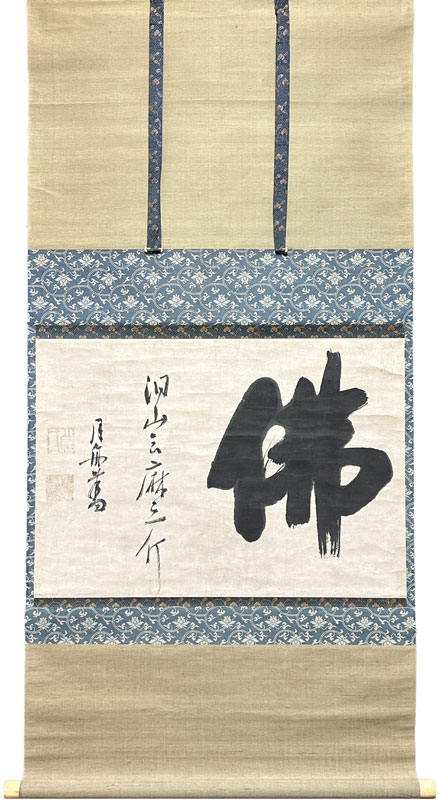 佛
洞山云麻三斤
月舟叟書